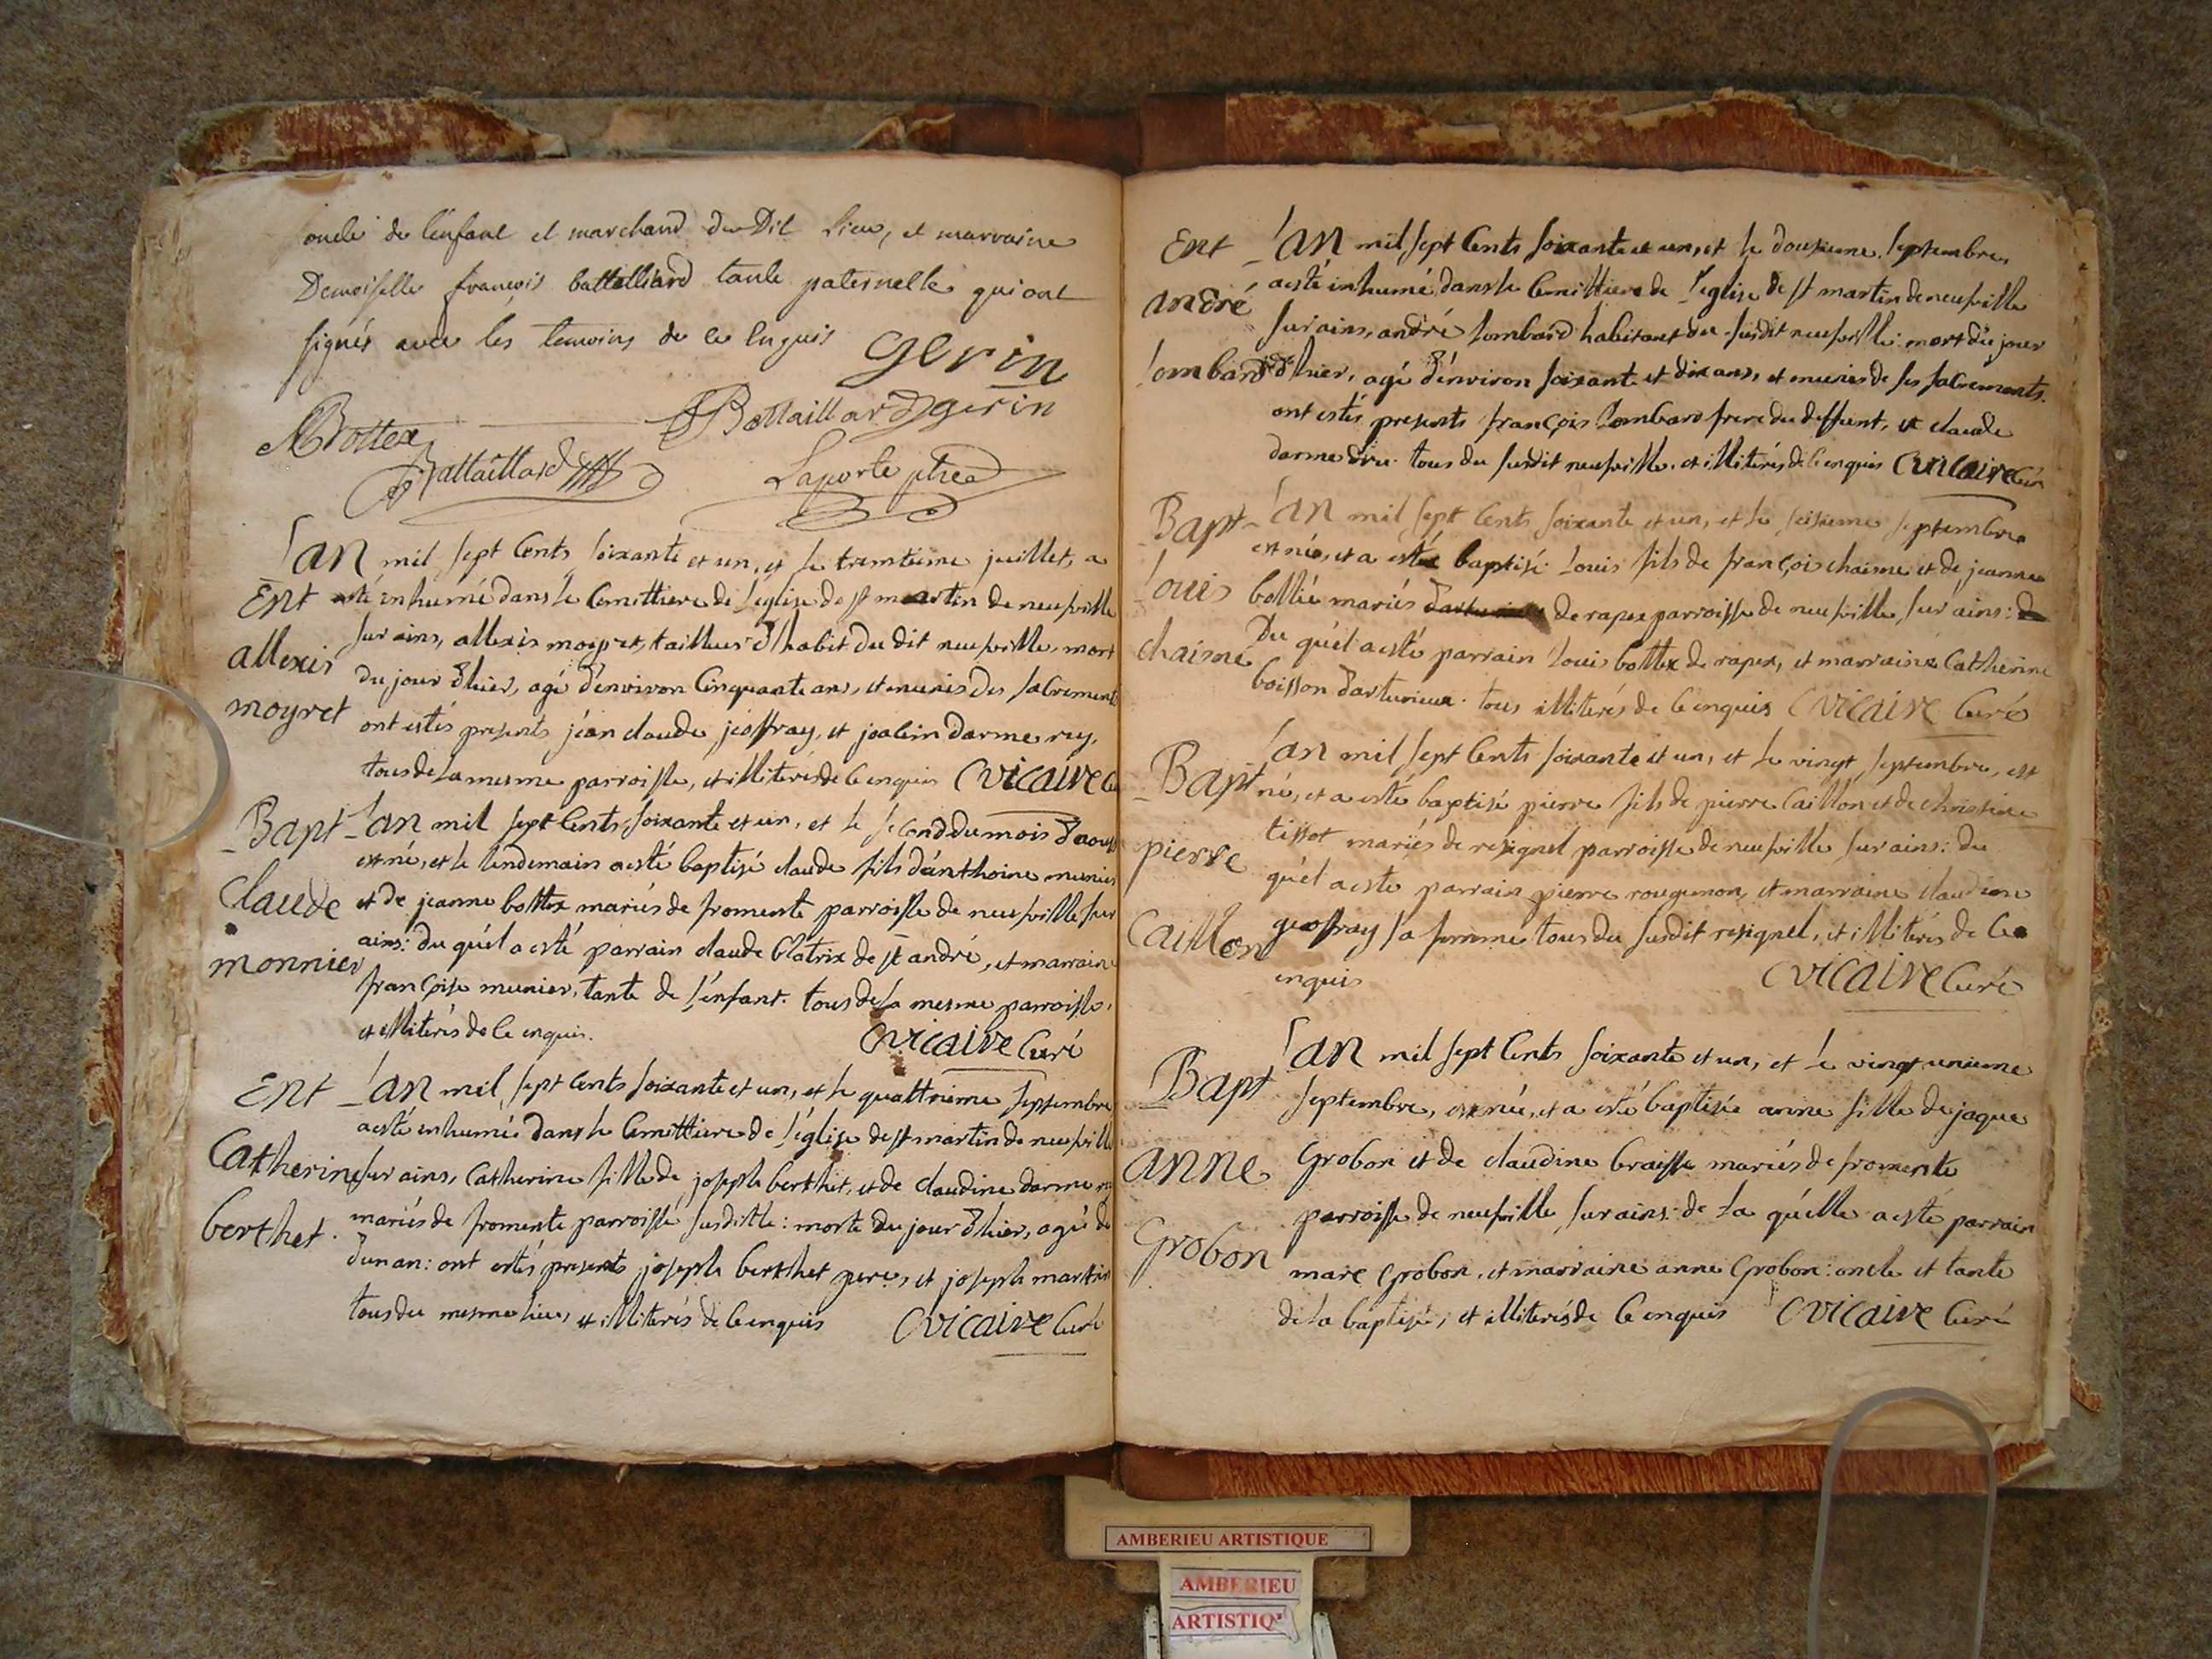 oncle de l'enfant et marchand du Dit Lieu, et marraine
Demoiselle françois battailliard tante paternelle qui ont
signés avec les temoins de ce Enquis gerin
MBottex JBattaillard gerin
Battaillard Laporte ptre
L'an mil sept Cents soixante et un, et le trentieme juillet, a
Ent esté inhumé dans le Cemittiere de L'église de st martin de neufville
sur ains, allexis moyret, tailleur d'habit du dit neufville, mort
allexis du jour d'hier, agé d'environ Cinquante ans, et munis des sacrements
moyret ont estés presents jéan claude jeoffray, et joachin darmerey,
tous de La mesme parroisse, et illiterés de Ce enquis CVicaire Cu
Bapt L'an mil sept Cents soixante et un, et le second du mois d'aoust
est né, et le lendemain a esté baptisé claude fils d'anthoine munier
Claude et de jeanne bottex mariés de fromente parroisse de neufville sur
ains: du quél a esté parrain claude Blatrix de st andré, et marraine
monnier françoise munier, tante de L'enfant. tous de La mesme parroisse,
et illiterés de Ce enquis. CVicaire Curé
Ent L'an mil sept Cents soixante et un, et le quattrieme septembre
a esté inhumée dans le Cemittiere de L'église de st martin de neufville
Catherine sur ains, Catherine fille de joseph berthet, et de claudine darme
mariés de fromente parroisse susditte: morte du jour d'hier, agée de
berthet. d'un an: ont estés presents joseph berthet pere, et joseph martin
tous du mesme lieu, et illiterés de Ce enquis CVicaire Curé
Ent L'an mil sept Cents soixante et un, et le douzieme septembre,
a esté inhumé dans le Cemittiere de L'église de st martin de neufville
andré sur ains, andré Lombard habitant du susdit neufville: mort du jour
Lombard d'hier, agé d'environ soixante et dix ans, et munis de ses sacrements.
ont estés presents françois Lombard frere du deffunt, et claude
darmedru. tous du susdit neufville, et illiterés de Ce enquis CVicaire Cur
Bapt L'an mil sept Cents soixante et un, et le seizieme septembre
est né, et a esté baptisé Louis fils de françois chaisne et de jeanne
Louis bottié mariés de rapex parroisse de neufville sur ains:
Du quél a esté parrain Louis bottex de rapex, et marraine Catherine
chaisne boisson d'arturieux. tous illiterés de Ce enquis CVicaire Curé
L'an mil sept Cents soixante et un, et le vingt septembre, est
Bapt né, et a esté baptisé pierre fils de pierre Caillon et de christine
tissot mariés de resignel parroisse de neufville sur ains: du
pierre quél a esté parrain pierre rougemon, et marraine claudine
Caillon geoffray sa femme tous du susdit resignel, et illiterés de Ce
enquis CVicaire Curé
L'an mil sept Cents soixante et un, et Le vingt unieme
Bapt septembre, est née, et a esté baptisée anne fille de jaque
anne Grobon et de claudine braisse mariés de fromente
parroisse de neufville sur ains: de La quélle a esté parrain
Grobon marc Grobon, et marraine anne Grobon: oncle et tante
de La baptisée, et illiterés de Ce enquis CVicaire Curé
AMBERIEU ARTISTIQUE
AMBERIEU
ARTISTIQ